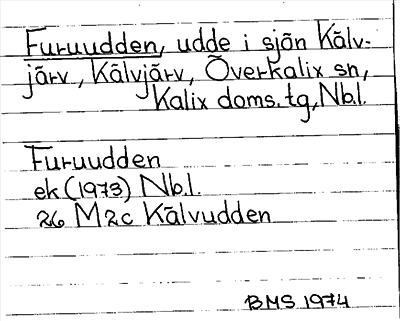 Furuudden, udde i sjön Kälv-
järv, Kälvjärv, Överkalix sn,
Kalix doms. tg, Nb.l.
Furuudden
ek (1973) Nb.l.
26 M 2c Kälvudden
BMS 1974